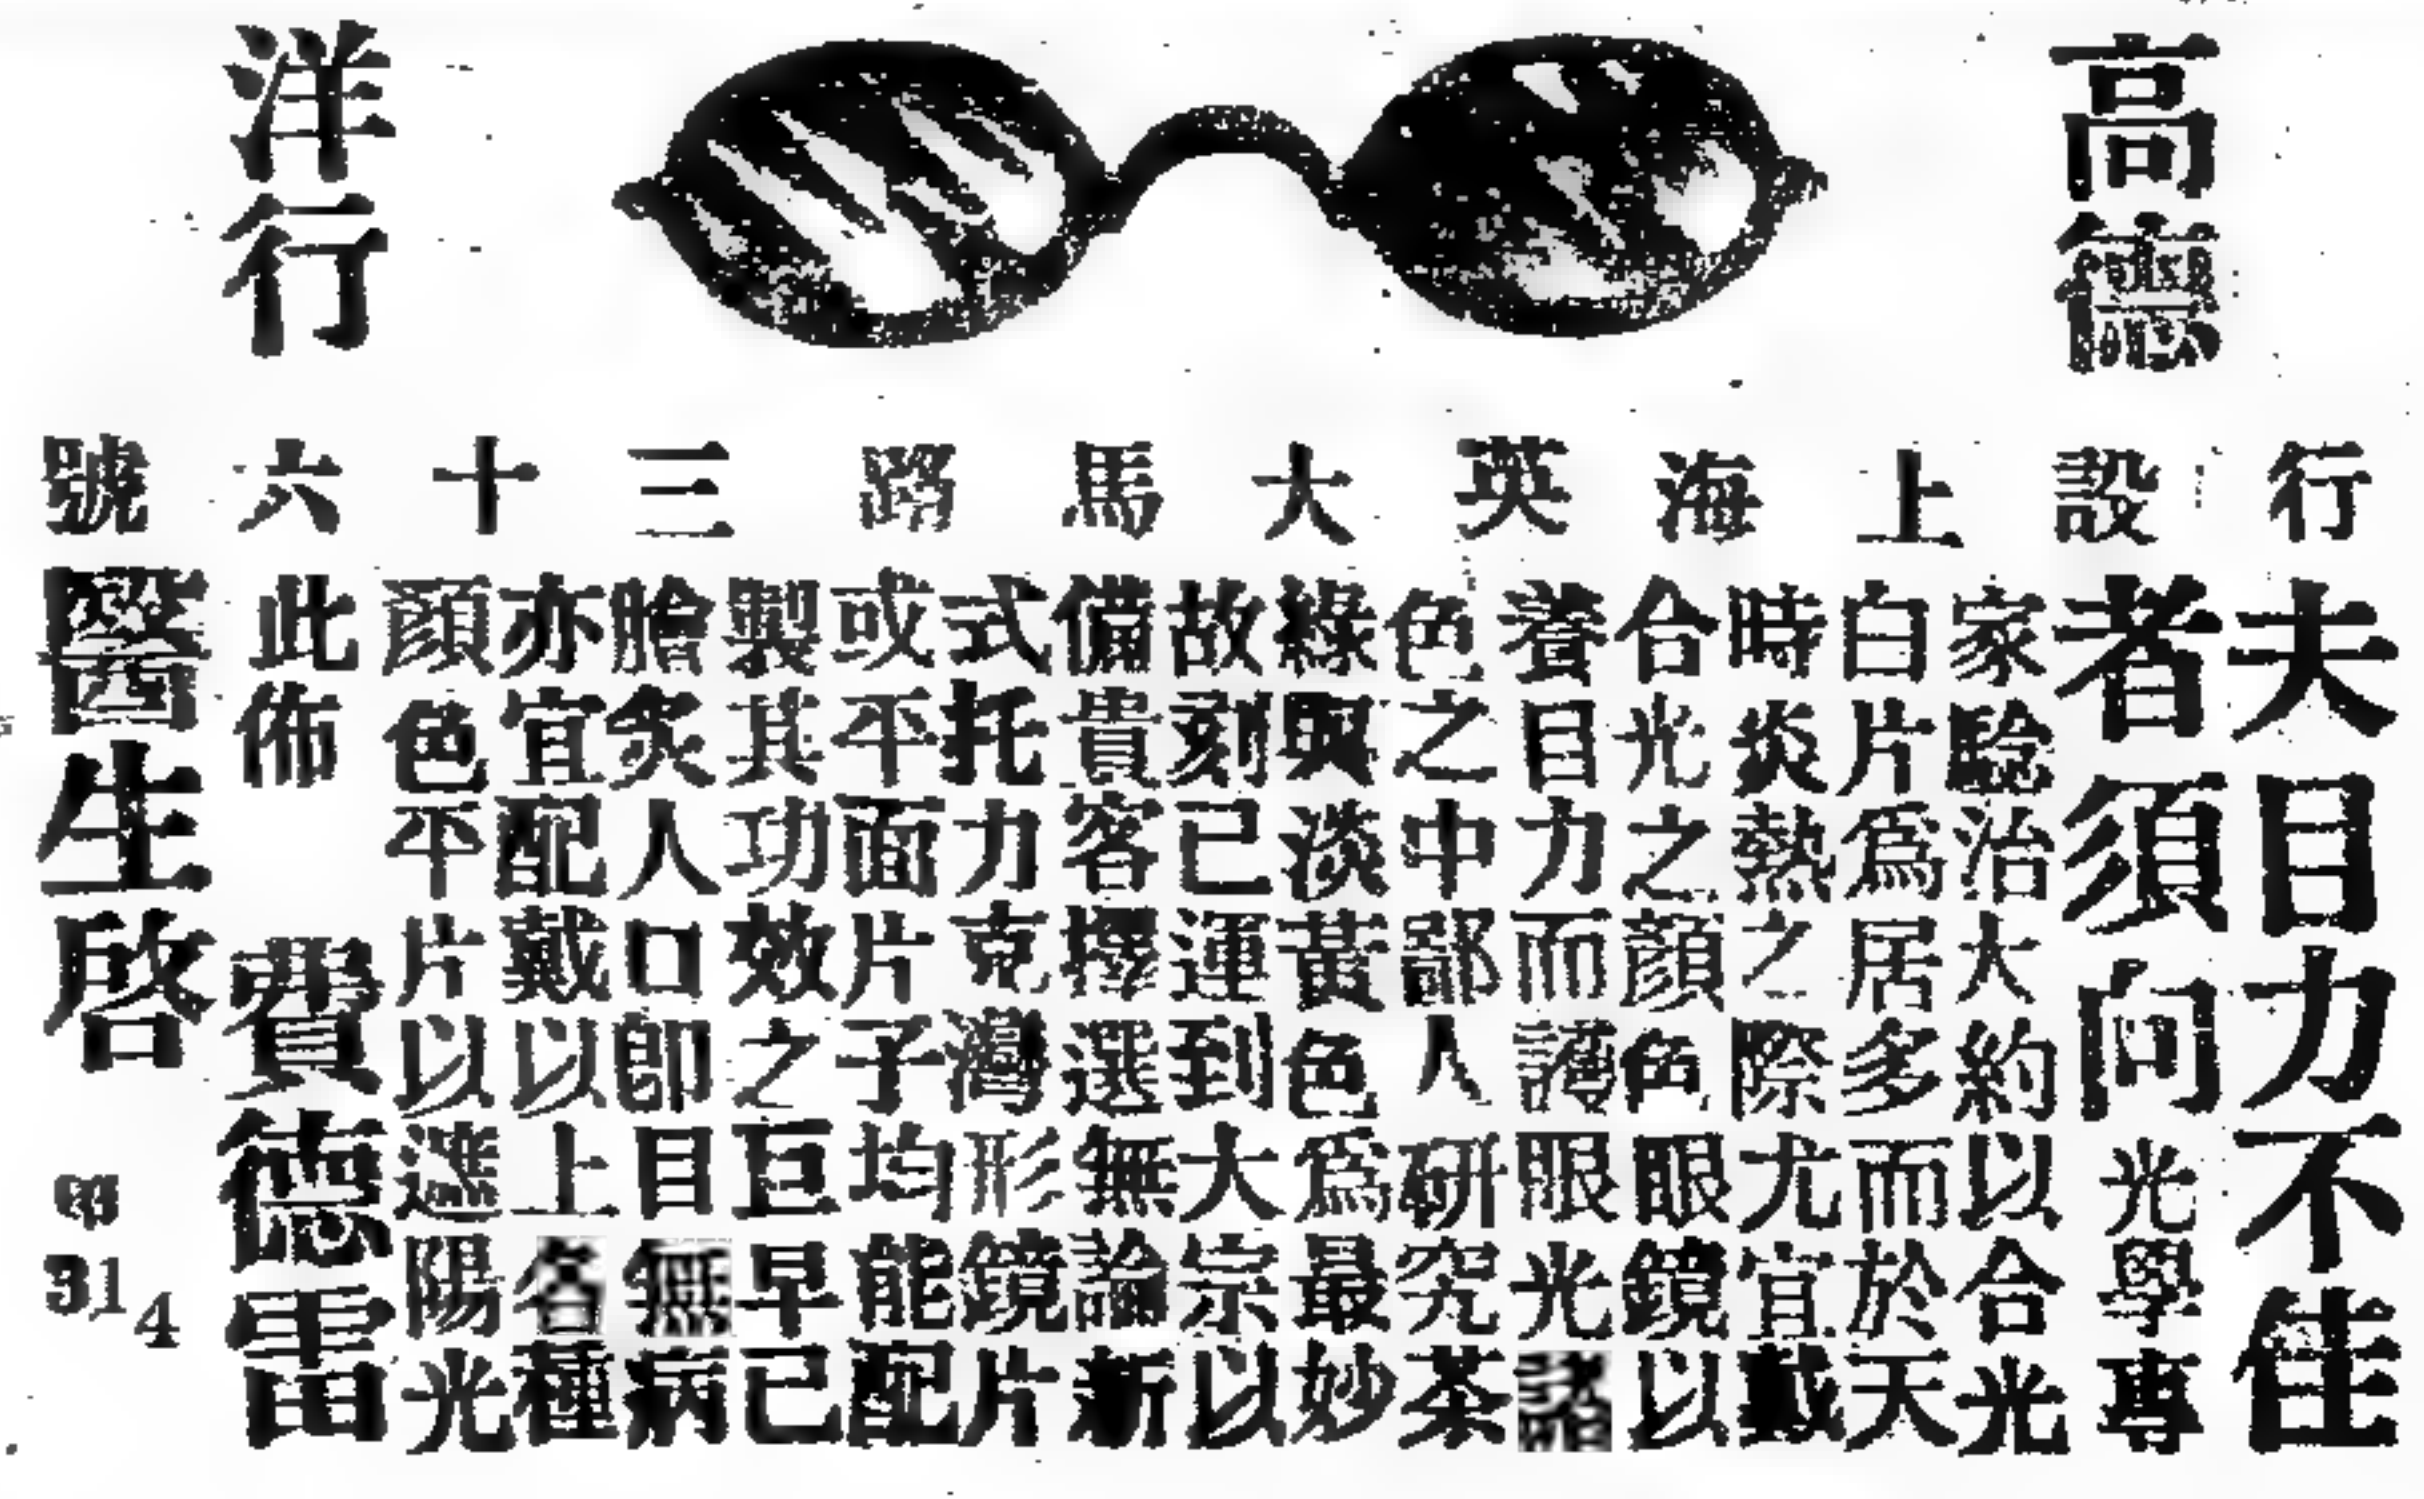 高德
洋行
行設上海英大馬路三十六號
夫目力不佳
者須向光學專
家驗治大約以合光
白片爲居多而於天
時炎熱之際尤宜戴
合光之顏色眼鏡以
養目力而護眼光諸
色之中鄙人研究茶
綠與淡黃色爲最妙
故刻已運到大宗以
備貴客擇選無論新
式托力克灣形鏡片
或平面片子均能配
製其功效之巨早已
膾炙人口卽目無病
亦宜配戴以上各種
顏色平片以遮陽光
此佈
費德雷
醫生啓
314